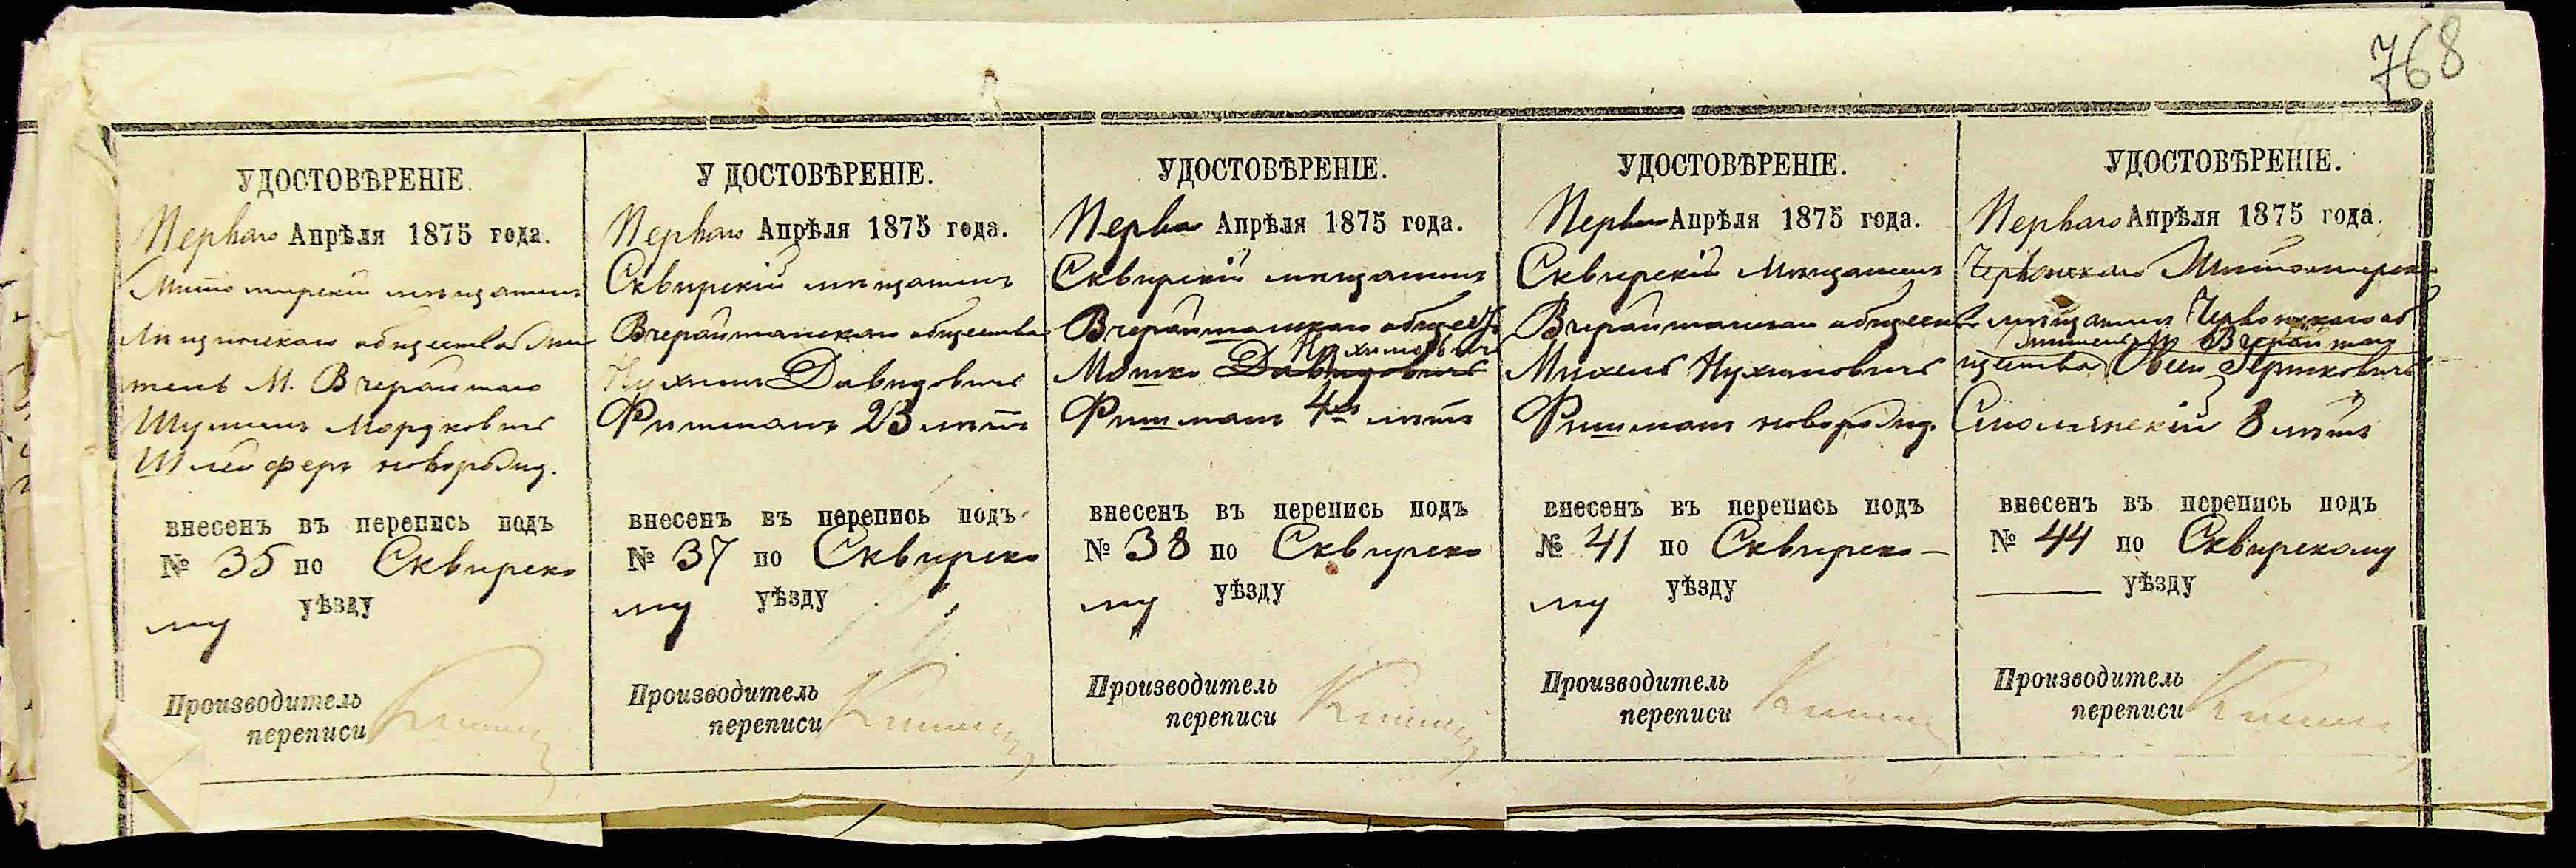 768
УДОСТОВѢРЕНІЕ.
Перваго Апрѣля 1875 года.
Житомирскій мѣщанинъ
общества жи
тель М. Вчерайшаго
Шулимъ Мордковичъ
Шлейферъ новорожд.
внесенъ въ перепись подъ
№ 35 по Сквирско
му уѣзду
Производитель
переписи
УДОСТОВѢРЕНІЕ.
Перваго Апрѣля 1875 года.
Сквирскій мѣщанинъ
Вчерайшанскаго общества
Нухимъ Давидовичъ
Фишманъ 23 лѣтъ
внесенъ въ перепись подъ
№ 37 по Сквирско
му уѣзду
Производитель
переписи
УДОСТОВѢРЕНІЕ.
Перва Апрѣля 1875 года.
Сквирскій мѣщанинъ
Вчерайшанскаго обществ
Нухимовичъ
Мошко Давидовичъ
Фишманъ 4хъ лѣтъ
внесенъ въ перепись подъ
№ 38 по Сквирско
му уѣзду
Производитель
переписи
УДОСТОВѢРЕНІЕ.
Перваго Апрѣля 1875 года.
Сквирскій Мѣщанинъ
Вчерайшанскаго обществ
Михель Нухимовичъ
Фишманъ новорожд.
внесенъ въ перепись подъ
№ 41 по Сквирско —
му уѣзду
Производитель
переписи
УДОСТОВѢРЕНІЕ.
Перваго Апрѣля 1875 года.
Червонскаго Житомирск
мѣщанинъ Червонскаго об
житель М Вчерайшаго
щества
Смолянскій 8 лѣтъ
внесенъ въ перепись подъ
№ 44 по Сквирскому
— уѣзду
Производитель
переписи